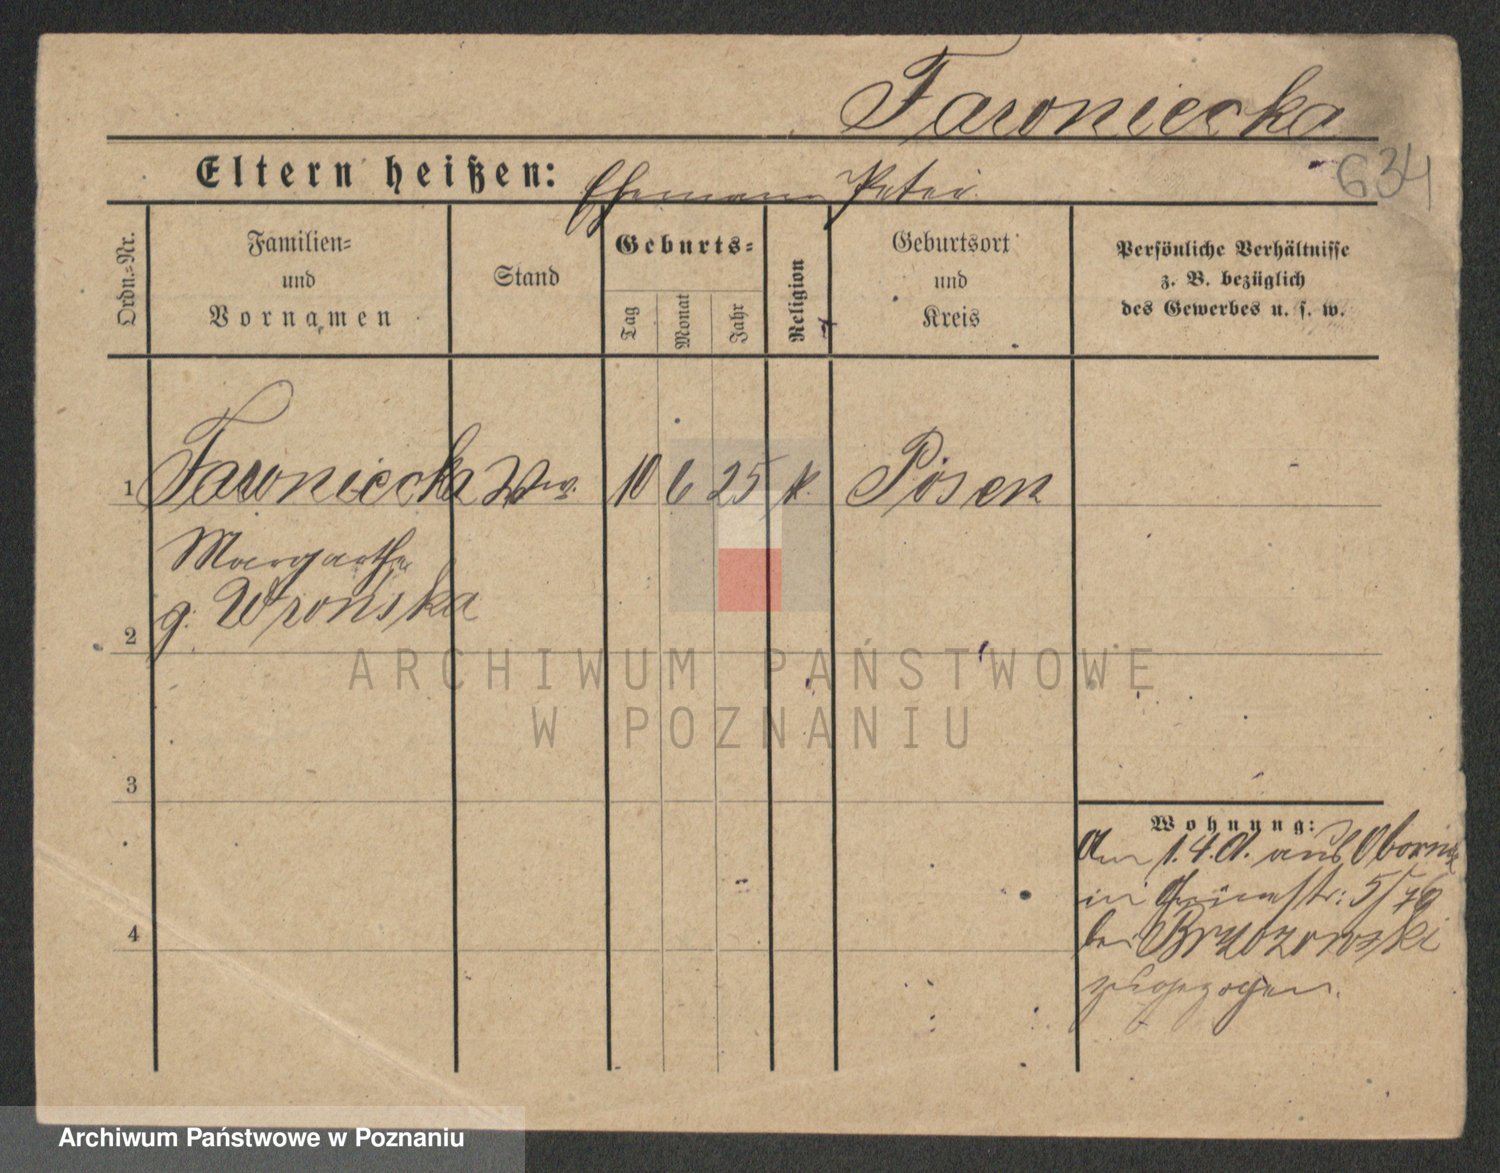 Jaroniecka
634
Eltern heißen: Ehemann Peter.
Ordn.=Nr.
Familien=
und
Vornamen
Stand
Geburts=
Tag
Monat
Jahr
Religion
Geburtsort
und
Kreis
Persönliche Verhältnisse
z. B. bezüglich
des Gewerbes u. s. w.
1 Jaroniecka Ww. 10 6 25 k. Posen
Margarethe
g. Wronska
2
ARCHIWUM PAŃSTWOWE
W POZNANIU
3
Wohnung:
am 1.4. aus
in 5/76
4
bei Brzozowski
zugezogen.
Archiwum Państwowe w Poznaniu